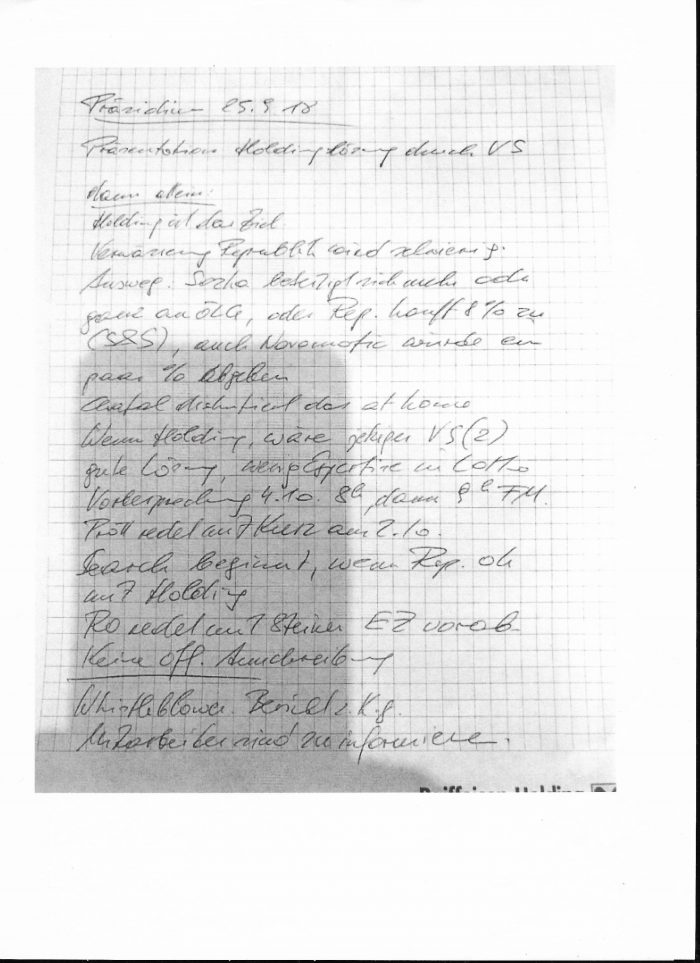 Präsidium 25.9.18
Präsentation Holdinglösung durch VS
Dann allein:
Holding ist das Ziel.
Republik wird schwierig.
Ausweg: Sazka beteiligt sich mehr oder
ganz an ÖLG, oder Rep. kauft 8 % zu
(S&S), auch Novomatic würde ein
paar % abgeben
Chatal diskutiert das at home
Wenn Holding, wäre jetziger VS (2)
gute Lösung, wenig Expertise in Lotto
Vorbesprechung 4.10. 8h, dann 9h FM.
Pröll redet mit Kurz am 2.10.
Search beginnt, wenn Rep. ok
mit Holding
RO redet mit Steiner EZ vorab
Keine öff. Ausschreibung
Whistleblower. Bericht z. K. g.
Mitarbeiter sind zu informieren.
Raiffeisen-Holding